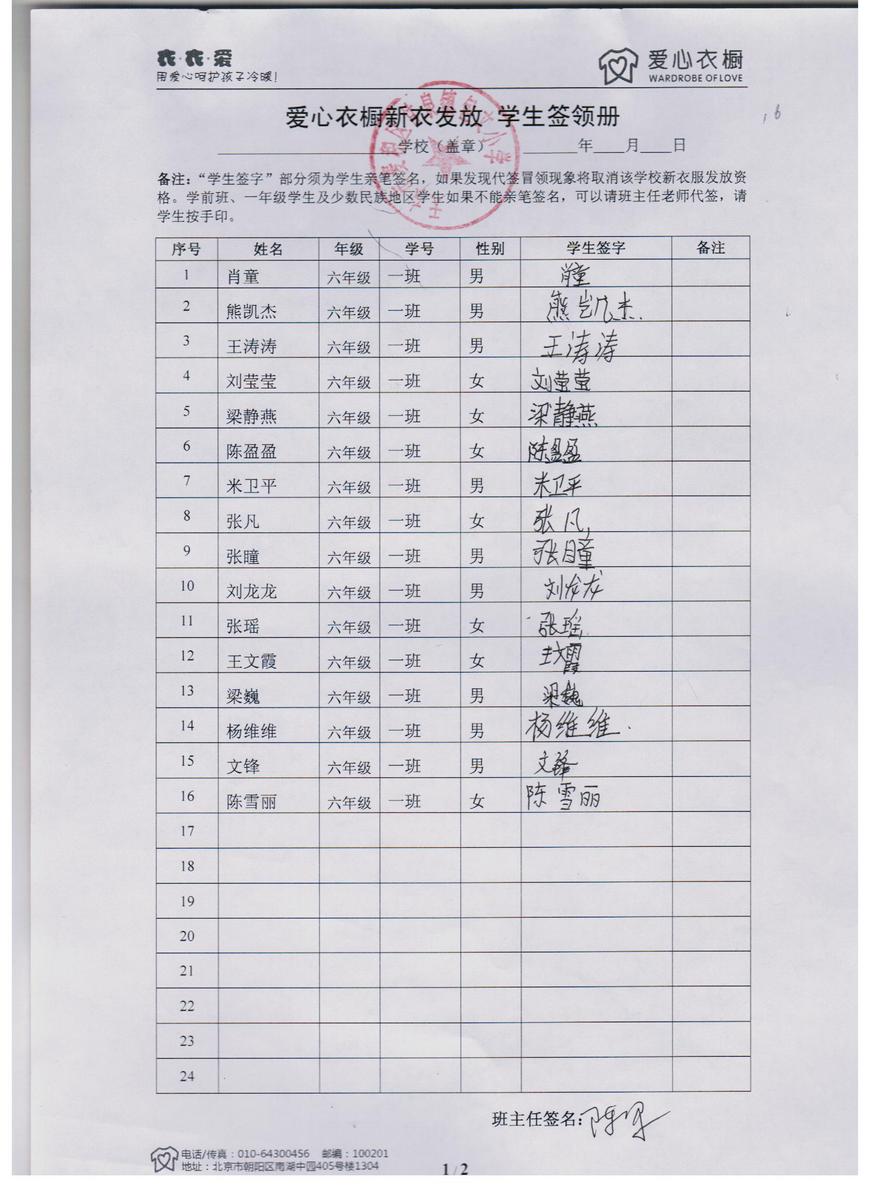 衣·衣·爱
用爱心呵护孩子冷暖!
爱心衣橱
WARDROBE OF LOVE
爱心衣橱新衣发放 学生签领册
学校（盖章） 年 月 日
备注：“学生签字”部分须为学生亲笔签名，如果发现代签冒领现象将取消该学校新衣服发放资
格。学前班、一年级学生及少数民族地区学生如果不能亲笔签名，可以请班主任老师代签，请
学生按手印。
序号 姓名 年级 学号 性别 学生签字 备注
1 肖童 六年级 一班 男 肖童
2 熊凯杰 六年级 一班 男 熊凯杰.
3 王涛涛 六年级 一班 男 王涛涛
4 刘莹莹 六年级 一班 女 刘莹莹
5 梁静燕 六年级 一班 女 梁静燕
6 陈盈盈 六年级 一班 女 陈盈盈
7 米卫平 六年级 一班 男 米卫平
8 张凡 六年级 一班 女 张凡
9 张瞳 六年级 一班 男 张瞳
10 刘龙龙 六年级 一班 男 刘龙龙
11 张瑶 六年级 一班 女 张瑶
12 王文霞 六年级 一班 女 王文霞
13 梁巍 六年级 一班 男 梁巍
14 杨维维 六年级 一班 男 杨维维.
15 文锋 六年级 一班 男 文锋
16 陈雪丽 六年级 一班 女 陈雪丽
17
18
19
20
21
22
23
24
班主任签名:
电话/传真：010-64300456 邮编：100201
地址：北京市朝阳区南湖中园405号楼1304
1 / 2